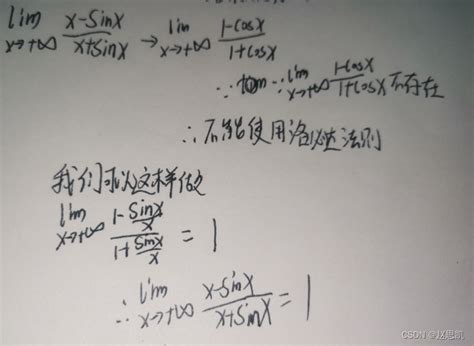 lim x→+∞ (x-sinx)/(x+sinx) → lim x→+∞ (1-cosx)/(1+cosx)
∵ lim x→+∞ (1-cosx)/(1+cosx) 不存在
∴ 不能使用洛必达法则
我们可以这样做
lim x→+∞ (1-sinx/x)/(1+sinx/x) = 1
∴ lim x→+∞ (x-sinx)/(x+sinx) = 1
CSDN @赵思凯